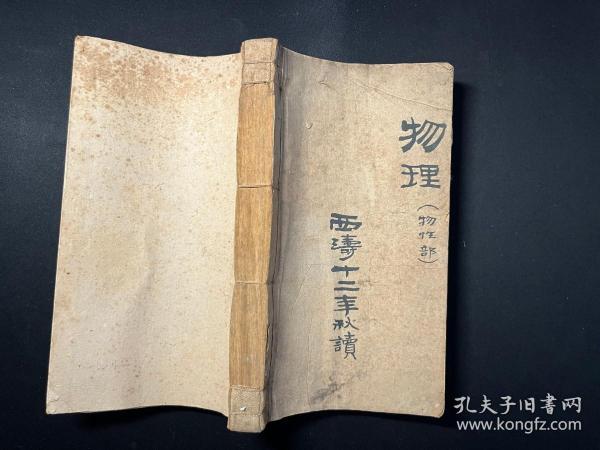 物理
（物性部）
西濤十二年秋讀
孔夫子旧書网
www.kongfz.com